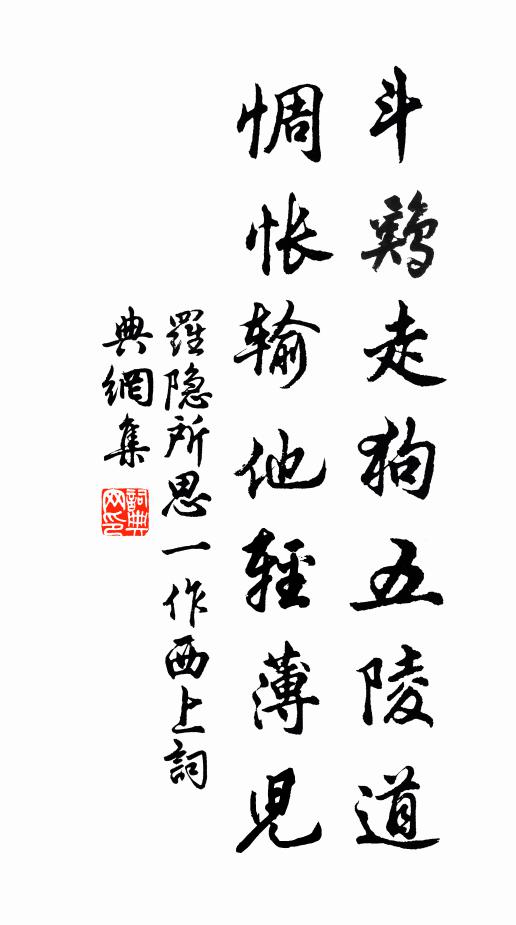 斗鷄走狗五陵道
惆怅输他輕薄兒
羅隐所思一作西上詞
典網集
詞典網印